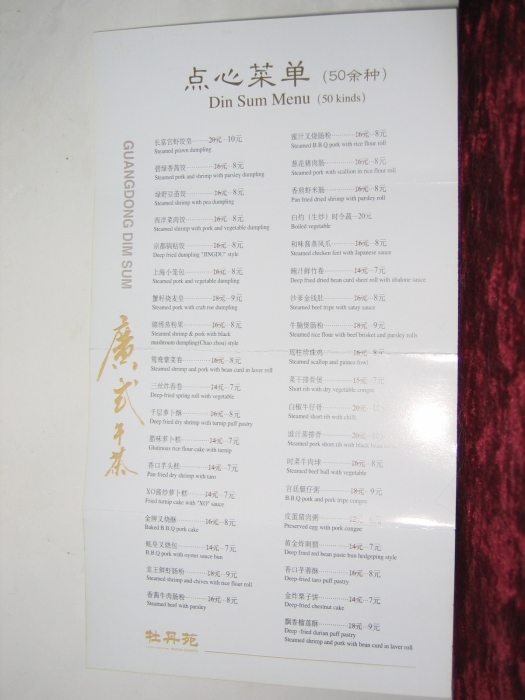 点心菜单 (50余种)
Din Sum Menu (50 kinds)
GUANGDONG DIM SUM
廣式午茶
长富宫虾饺皇 20元 10元
Steamed prawn dumpling
碧绿香茜饺 16元 8元
Steamed pork and shrimp with parsley dumpling
绿野豆苗饺 16元 8元
Steamed shrimp with pea dumpling
西洋菜肉饺 16元 8元
Steamed shrimp with pork and vegetable dumpling
京都锅贴饺 16元 8元
Deep fried dumpling "JINGDU" style
上海小笼包 16元 8元
Steamed pork and vegetable dumpling
蟹籽烧麦皇 18元 9元
Steamed pork with crab roe dumpling
潮州蒸粉果 16元 8元
Steamed shrimp & pork with black
mushroom dumpling(Chao zhou) style
16元 8元
Steamed shrimp and pork with bean curd in laver roll
三丝炸春卷 14元 7元
Deep-fried spring roll with vegetable
千层萝卜酥 16元 8元
Deep fried dry shrimp with turnip puff pastry
腊味萝卜糕 14元 7元
Glutinous rice flour cake with turnip
香口芋头糕 14元 7元
Pan fried dry shrimp with taro
XO酱炒萝卜糕 14元 7元
Fried turnip cake with "XO" sauce
金牌叉烧酥 16元 8元
Baked B.B.Q pork cake
蚝皇叉烧包 14元 7元
B.B.Q pork with oyster sauce bun
韭王鲜虾肠粉 18元 9元
Steamed shrimp and chives with rice flour roll
香茜牛肉肠粉 16元 8元
Steamed beef with parsley
蜜汁叉烧肠粉 16元 8元
Steamed B.B.Q pork with rice flour roll
葱花猪肉肠 16元 8元
Steamed pork with scallion in rice flour roll
香煎虾米肠 16元 8元
Pan fried dried shrimp with parsley roll
白灼（生炒）时令蔬 20元
Boiled vegetable
和味酱蒸凤爪 16元 8元
Steamed chicken feet with Japanese sauce
鲍汁鲜竹卷 14元 7元
Deep fried dried bean curd sheet roll with abalone sauce
沙爹金钱肚 16元 8元
Steamed beef tripe with satay sauce
牛腩煲肠粉 18元 9元
Steamed rice flour with beef brisket and parsley rolls
瑶柱珍珠鸡 16元 8元
Steamed scallop and guinea fowl
菜干排骨煲 15元 7元
Short rib with dry vegetable congee
白椒牛仔骨 20元
Steamed short rib with chili
豉汁蒸排骨 20元
Steamed pork short rib with black bean
时菜牛肉球 16元 8元
Steamed beef ball with vegetable
猪仔粥 18元 9元
B.B.Q pork and pork tripe congee
皮蛋猪肉粥
Preserved egg with pork congee
黄金炸刺猬 14元 7元
Deep fried red bean paste bun hedgeping style
香口芋蓉酥 16元 8元
Deep-fried taro puff pastry
金炸栗子饼 14元 7元
Deep-fried chestnut cake
飘香榴莲酥 18元 9元
Deep -fried durian puff pastry
Steamed shrimp and pork with bean curd in laver roll
牡丹苑